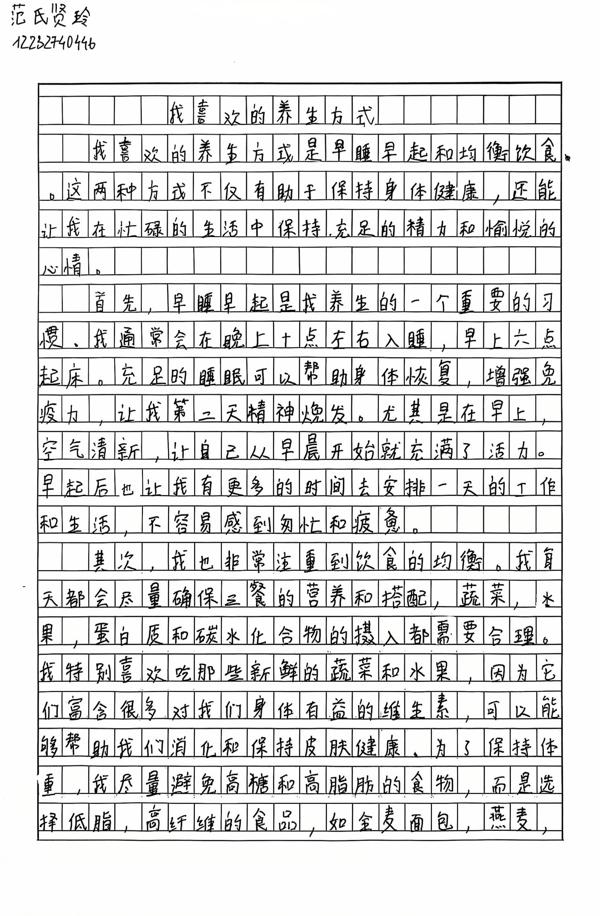 范氏贤玲
12232740446
我喜欢的养生方式
我喜欢的养生方式是早睡早起和均衡饮食
。这两种方式不仅有助于保持身体健康，还能
让我在忙碌的生活中保持充足的精力和愉悦的
心情。
首先，早睡早起是我养生的一个重要的习
惯、我通常会在晚上十点左右入睡，早上六点
起床。充足的睡眠可以帮助身体恢复，增强免
疫力，让我第二天精神焕发。尤其是在早上，
空气清新，让自己从早晨开始就充满了活力。
早起后也让我有更多的时间去安排一天的工作
和生活，不容易感到匆忙和疲惫。
其次，我也非常注重到饮食的均衡。我每
天都会尽量确保三餐的营养和搭配，蔬菜，水
果，蛋白质和碳水化合物的摄入都需要合理。
我特别喜欢吃那些新鲜的蔬菜和水果，因为它
们富含很多对我们身体有益的维生素，可以能
够帮助我们消化和保持皮肤健康、为了保持体
重，我尽量避免高糖和高脂肪的食物，而是选
择低脂，高纤维的食品，如全麦面包，燕麦，